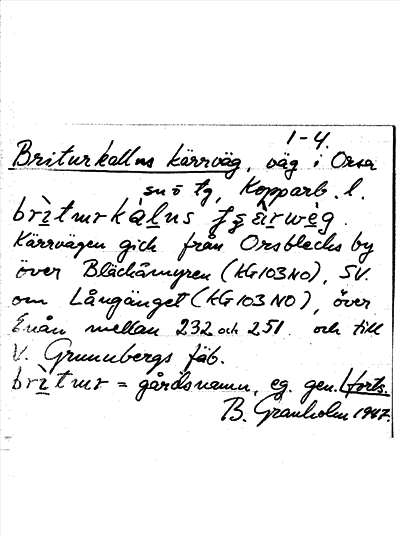 1-4.
Briturkallus kärrväg, väg i Orsa
sn o tg, Kopparb. l.
brìtmrkàlus fȩ̀rwèg.
Kärrvägen gick från Orsblecks by
över Bläckåmyren (KG103NO), SV.
om Långänget (KG103NO), över
Enån mellan 232 och 251. och till
V. Grunubergs fäb.
brìtmr = gårdsnamn, eg. gen. (forts.
B. Granholm 1947.